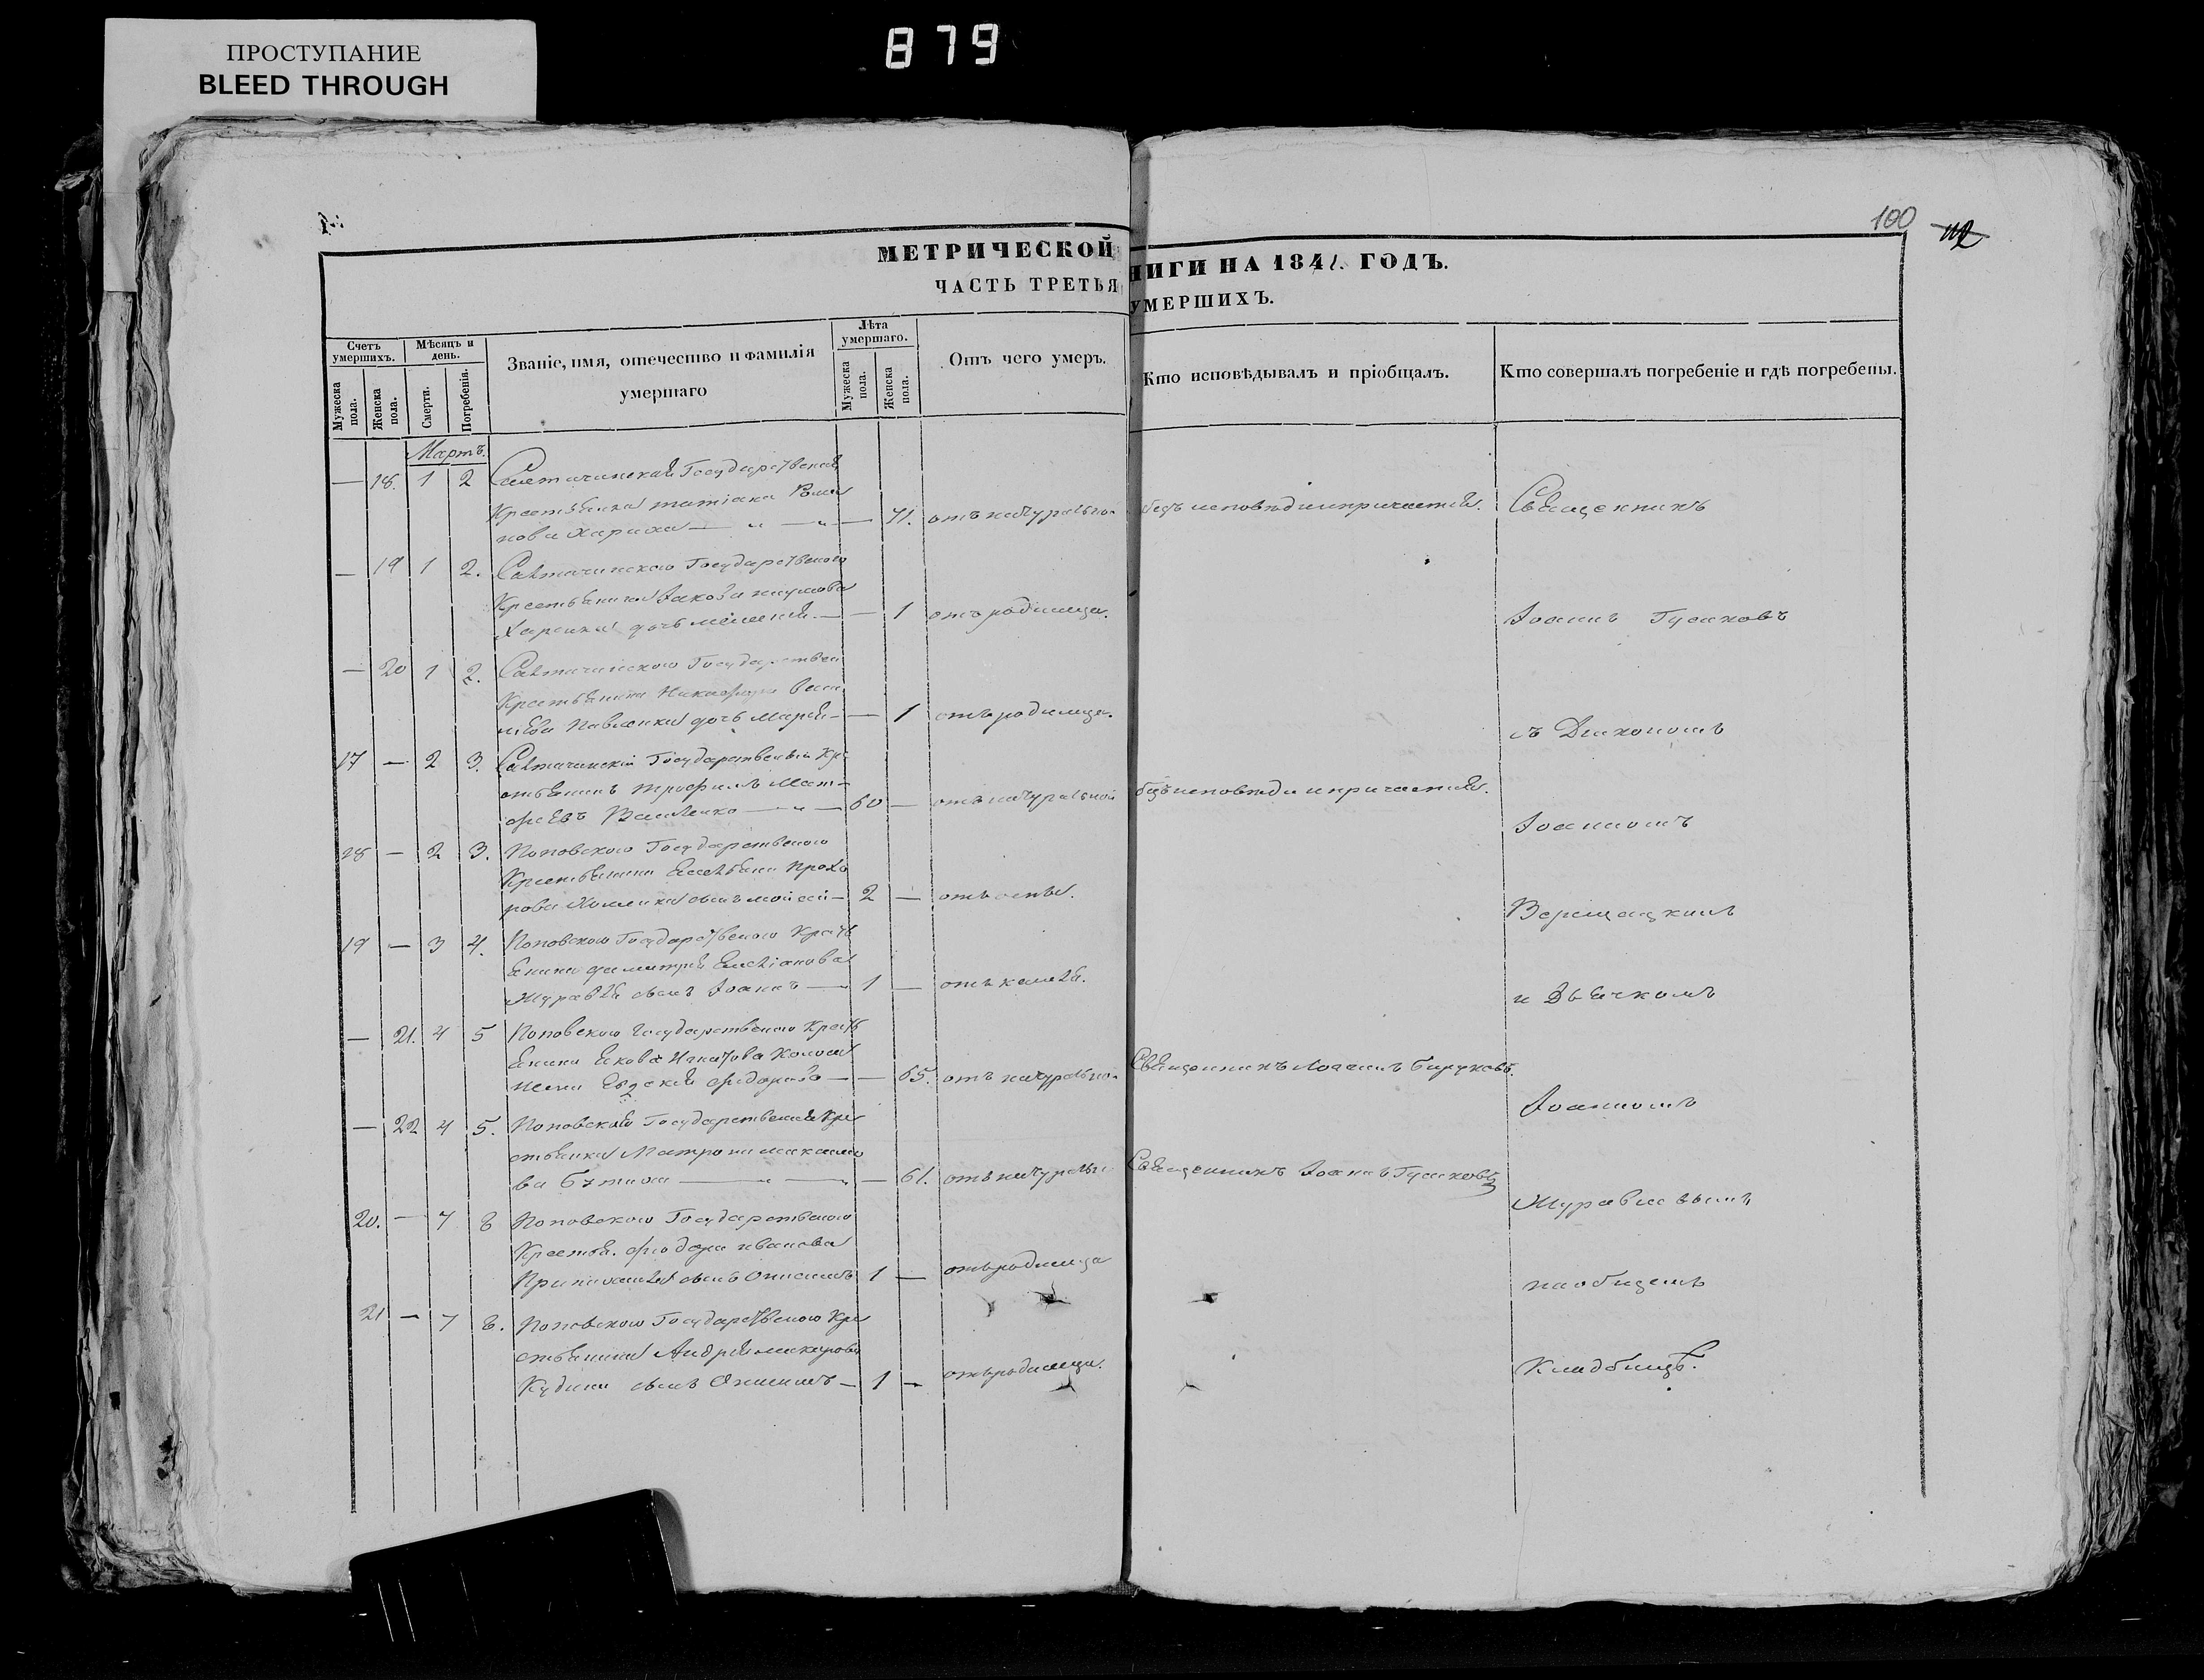 ПРОСТУПАНИЕ
BLEED THROUGH
879
100
112
МЕТРИЧЕСКОЙ КНИГИ НА 1841. ГОДЪ.
ЧАСТЬ ТРЕТЬЯ УМЕРШИХЪ.
Счетъ умершихъ.
Мужеска пола.
Женска пола.
Мѣсяцъ и день.
Смерти.
Погребенія.
Званіе, имя, отечество и фамилія
умершаго
Лѣта умершаго.
Мужеска пола.
Женска пола.
Отъ чего умеръ.
Кто исповѣдывалъ и пріобщалъ.
Кто совершалъ погребеніе и гдѣ погребены.
Мартъ.
— 18. 1 2 Государственная
Крестьянка татіана Рома
нова — 71. отъ натуральной безъ исповѣди и причастія. Священникъ
— 19 1 2. Государственого
Крестьянина Іакова
дочь — 1 отъ родимца. Іоаннъ Гусаковъ
— 20 1 2. Государствен
Крестьянина Никифора Васи
Павленка дочь Марія — 1 отъ родимца. съ Діакономъ
17 — 2 3. Государственый Кре
стьянинъ трофимъ Мат
фѣевъ Василенко — 60 — отъ натуральной безъ исповѣди и причастія. Іоанномъ
18 — 2 3. Поповского Государственого
Крестьянина Емельяна Прохо
рова сынъ моисей — 2 — отъ оспы. Верещацкимъ
19 — 3 4. Поповского Государственого Кресть
янина димитрія Емеліанова
Журавля сынъ Іоанъ — 1 — отъ кашля. и Дьячкомъ
— 21. 4 5 Поповского Государственого Кресть
янина Якова Игнатова
жена Евдокія фидорова — 65. отъ натурально Священникъ Іоаннъ Іоанномъ
— 22 4 5. Поповская Государственая Кре
стьянка Матрона максимо
ва — 61. отъ натурально Священникъ Іоаннъ Гусаковъ Журавлевымъ
20. — 7 8 Поповского Государственого
Крестья. фиодора иванова
сынъ Онисимъ 1 — отъ родимца на общемъ
21 — 7 8. Поповского Государственого Кре
стьянина Андрея макарова
сынъ Онисимъ — 1 — отъ родимца. Кладбищѣ.